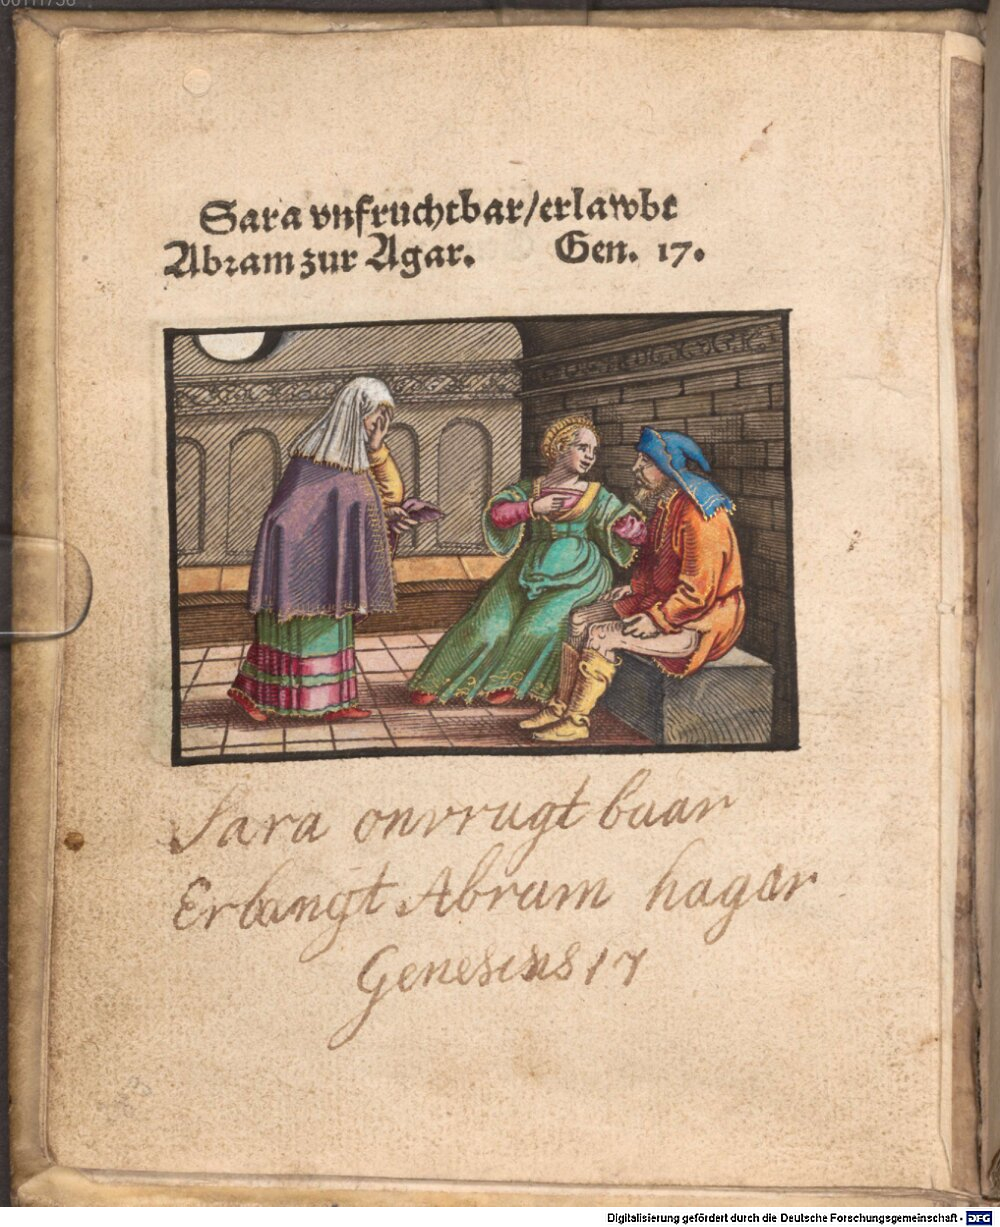 Sara vnfruchtbar/erlawbt
Abram zur Agar. Gen. 17.
Sara onvrugt baar
Erlangt Abram hagar
Genesins 17
Digitalisierung gefördert durch die Deutsche Forschungsgemeinschaft - DFG